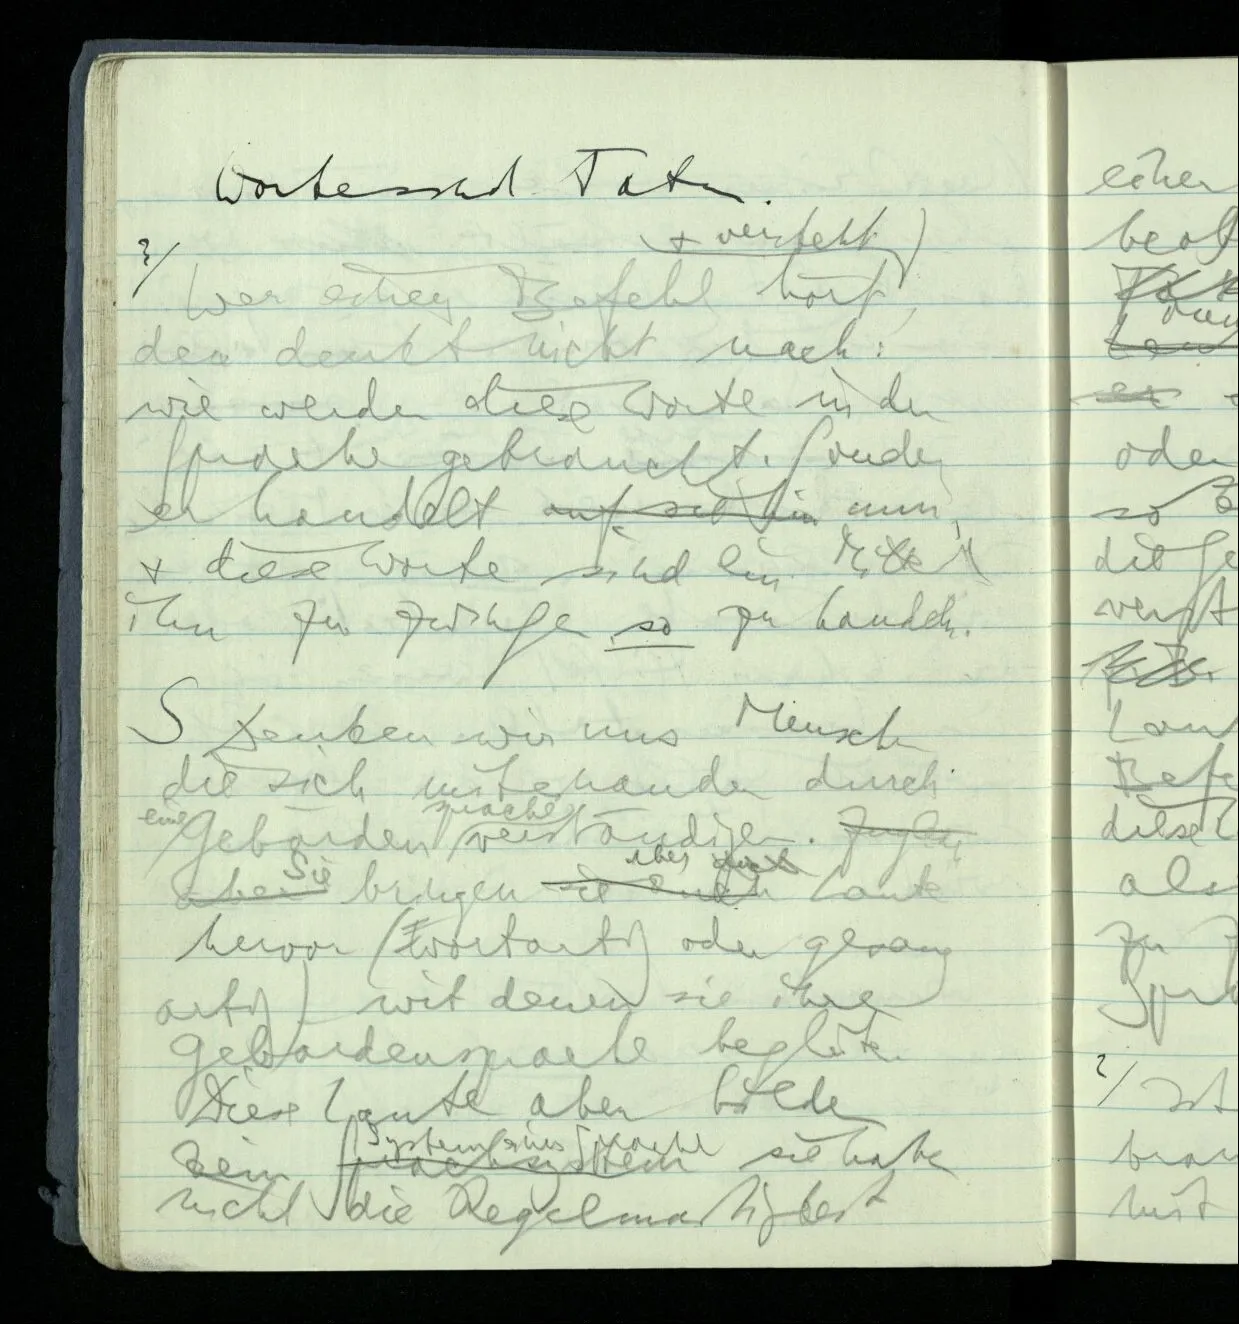 Worte sind Taten.
?/
+ versteht)
Wer einen Befehl hört,
der denkt nicht nach:
wie werden diese Worte in der
Sprache gebraucht. Sondern
er handelt auf sie hin nun,
+ diese Worte sind ein Mittel
ihn zu zwingen so zu handeln.
S Denken wir uns Menschen
die sich miteinander durch
eine sprache
Gebärden verständigen.
Sie aber
aber bringen sie auch Laute
hervor (wortartig) oder gesang
artig) mit denen sie ihre
Gebärdensprache begleiten.
Diese Laute aber bilden
System einer Sprache
kein Sprachsystem sie haben
nicht die Regelmäßigkeit
einer
oder
so
die Ge
verst
Lau
Befe
diese
als
zu
Spr
?/ Ist
mit